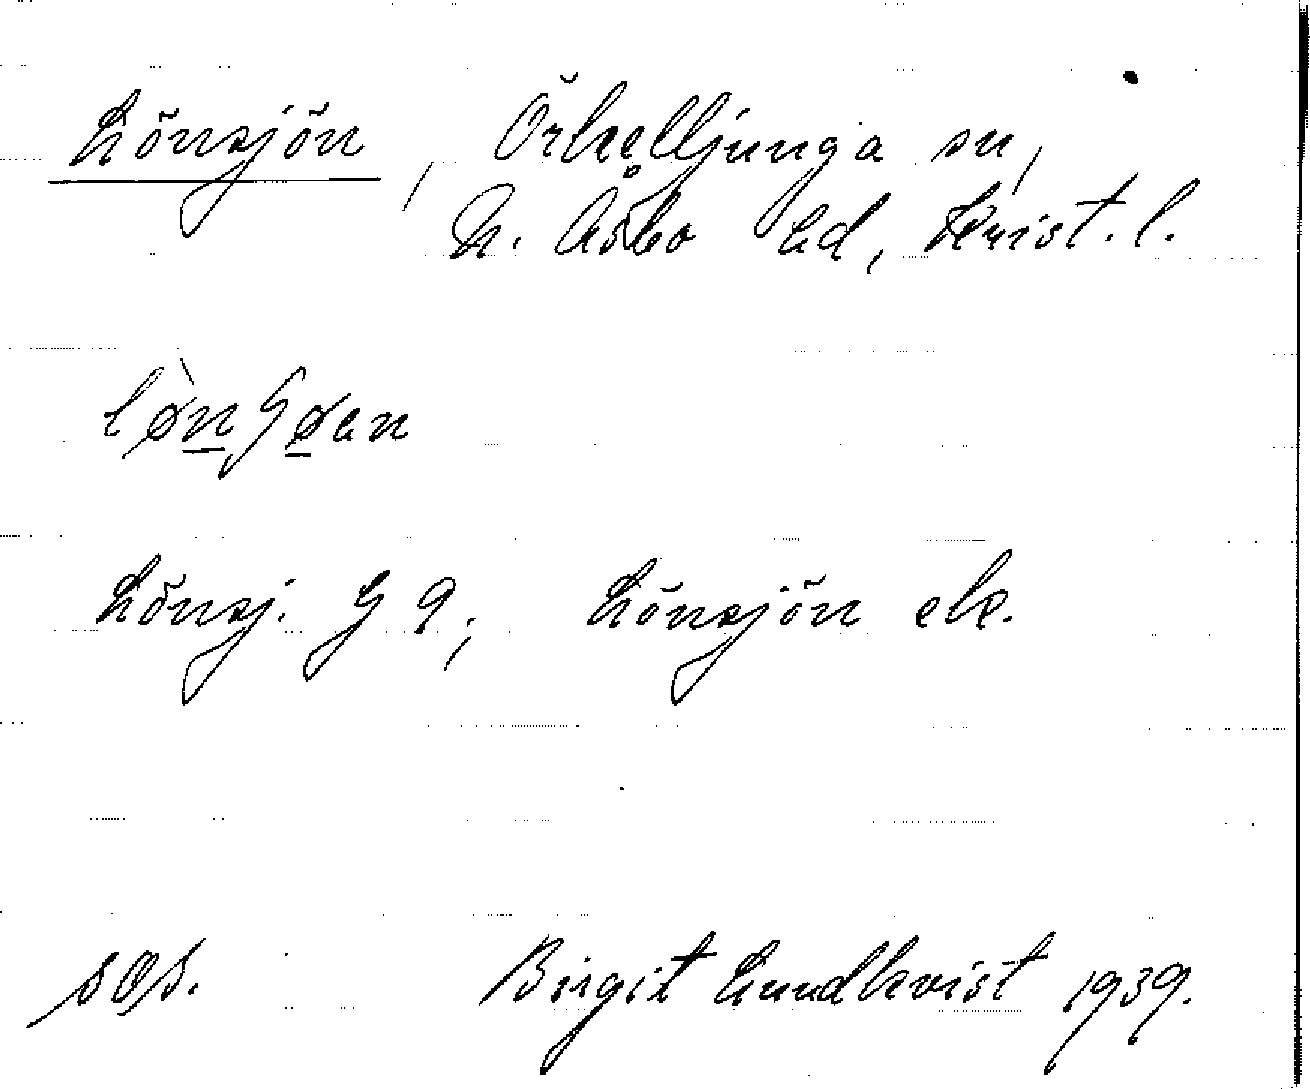 Lönsjön, Örkelljunga sn,
N. Åsbo hd, Krist. l.
Lönsj. G 9; Lönsjön ek.
sos. Birgit Lundkvist 1939.